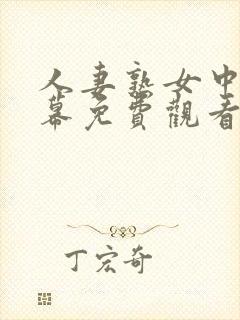 人妻熟女中
幕免費觀看
丁宏奇